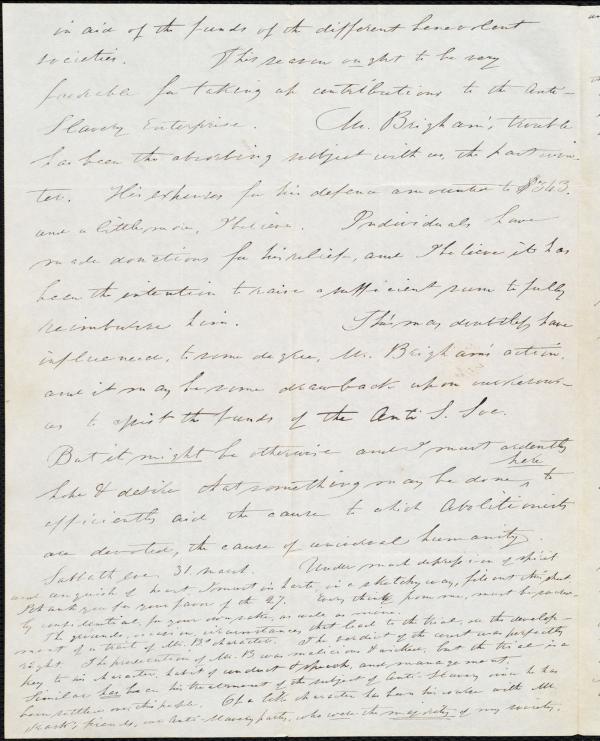 in aid of the funds of the different benevolent
societies. This season ought to be very
favorable for taking up contributions to the Anti-
Slavery Enterprise. Mr. Brigham's trouble
has been the absorbing subject with us, the past win-
ter. His expenses for his defence amounted to $343.
and a little more, I believe. Individuals have
made donations for his relief, and I believe it has
been the intention to raise a sufficient sum to fully
reimburse him. This may doubtless have
influenced, to some degree, Mr. Brigham's action,
and it may be some drawback upon our
as to assist the funds of the Anti S. Soc.
But it might be otherwise and I must ardently
hope & desire that something may be done here to
efficiently aid the cause to which Abolitionists
are devoted, the cause of universal humanity.
Sabbath eve. 31. March. Under much depression of spirit
and anguish of heart, I must in haste, in a sketchy way, fill out this sheet.
I thank you for your favor of the 27. Every thing from me, must be
confidential, for your own sake, as well as mine.
The grounds, occasion, circumstances that lead to the trial, or the develop-
ment of a trait of Mr. B's character. The verdict of the court was perfectly
right. The prosecution of Mr. B was malicious & wicked, but the trial is a
key to his character, habit of conduct & speech, and management.
Similar has been his treatment of the subject of anti-slavery since he has
been settled over this people. Of a like character has been his course with Mr.
friends, our Anti-Slavery party, who were the majority of my society.